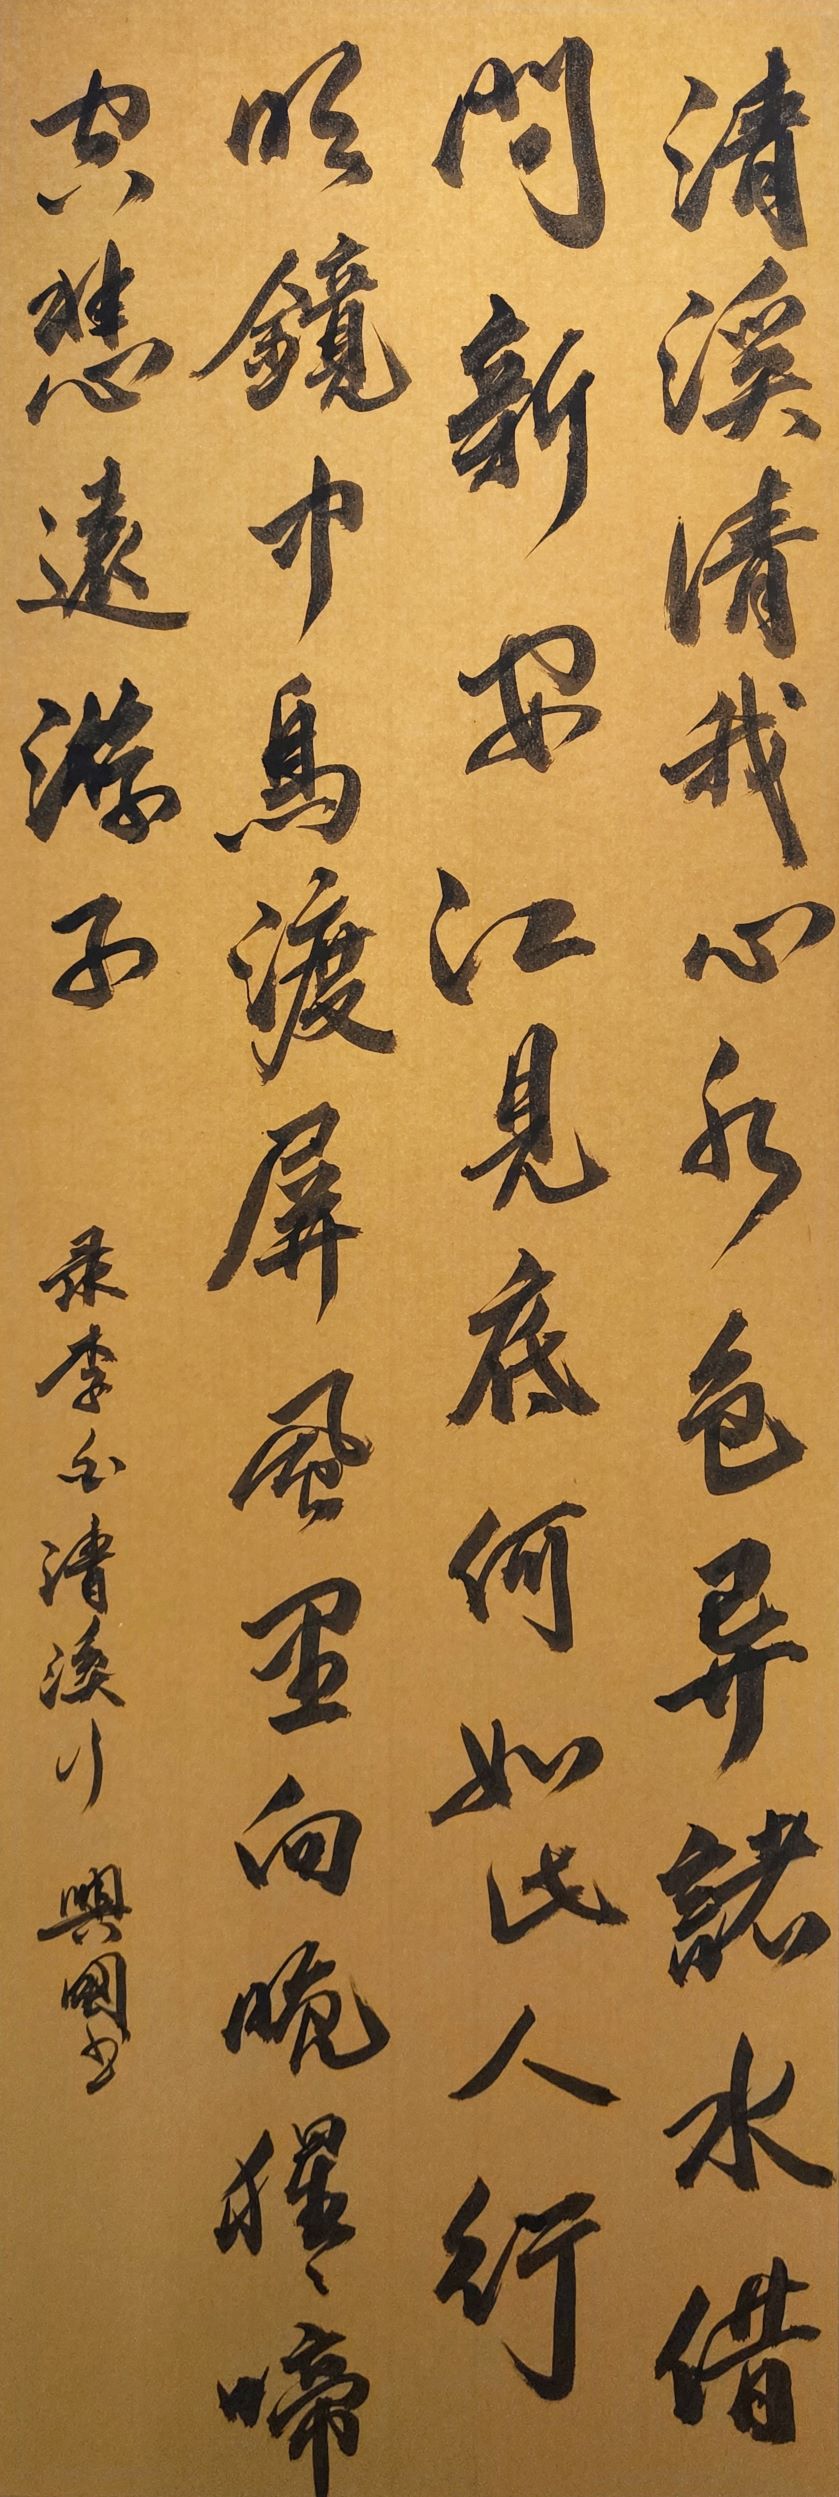 清溪清我心水色异諸水借
問新安江見底何如此人行
明鏡中鳥渡屏風里向晚猩々啼
空悲遠游子 录李白清溪行 興國书